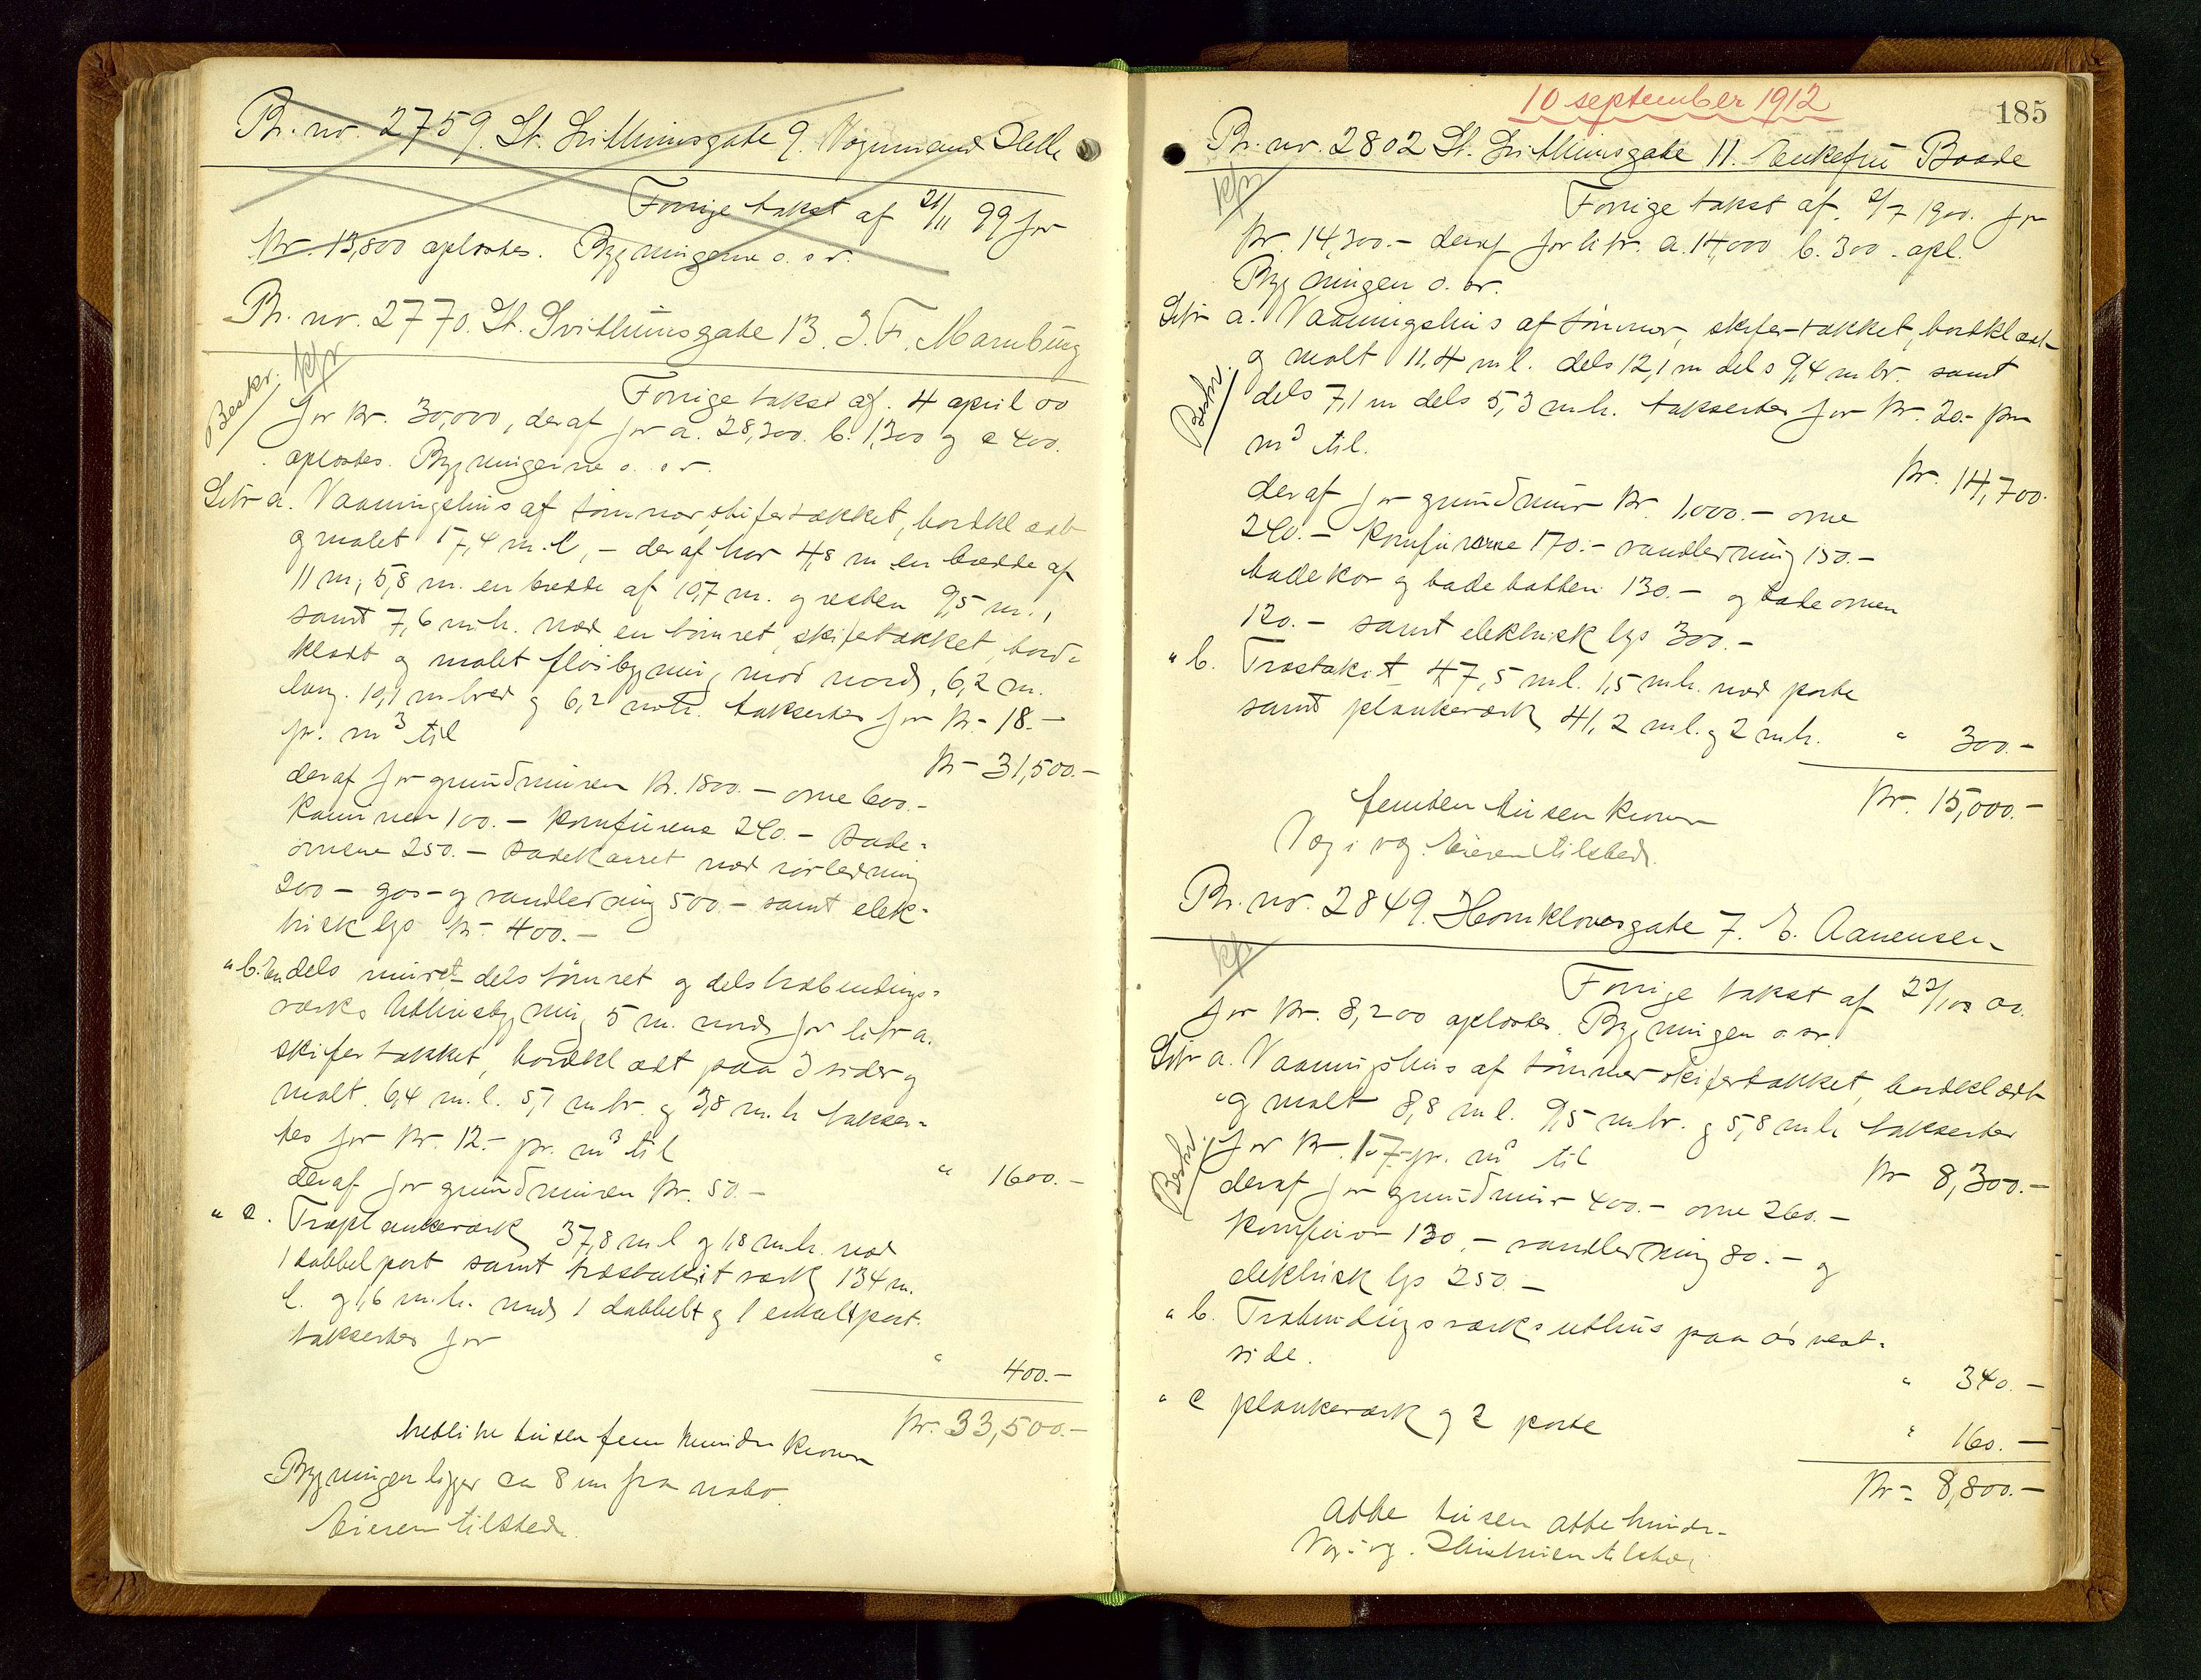 Br. nr. 2759. St. Svithunsgate 9. Vognmand Helle
Forrige takst af 21/11 99 for
Kr. 13,800 opløstes. Bygningerne o. s v.
Br. nr. 2770. St. Svithunsgate 13. J. F. Marnburg
Beskr. kfr
Forrige takst af. 4 april 00
for Kr. 30,000, deraf for a. 28,300. b. 1,300 og c 400.
opløstes. Bygningerne o. s v.
Litr a. Vaaningshus af tømmer, skifertækket, bordklædt
og malet 17,4 m. l, - deraf har 4,8 m en bredde af
11 m, 5,8 m. en bredde af 10,7 m. og resten 9,5 m.,
samt 7,6 m h. med en tømret, skifertækket, bord-
klædt og malet fløibygning mod nord, 6,2 m.
lang. 10,1 m bred og 6,2 m h. taksertes for Kr. 18.-
pr. m3 til
Kr - 31,500.-
deraf for grundmuren Kr. 1800.- ovne 600.-
kaminen 100.- komfurene 240.- bade-
ovnene 250.- badekarret med rørledning
200 - gas- og vandledning 500.- samt elek-
trisk lys kr. 400.-
" b. En dels muret- dels tømret og dels træbindings-
værks uthusbygning 5 m. nord for litr a.
skifertækket, bordklædt paa 3 sider og
malt. 6,4 m. l. 5,7 m br. og 3,8 m. h takser-
tes for Kr. 12.- pr. m3 til
" 1600.-
deraf for grundmuren Kr. 50.-
" c. Træplankeværk 37,8 m l og 1,8 m h. med
1 dobbelport samt træstakitværk 134 m.
l. og 1,6 m. h. med 1 dobbelt og 1 enkelt port.
taksertes for
" 400.-
Kr. 33,500.-
tretti tre tusen fem hundre kroner
Bygningen ligger ca 8 m fra nabo.
Eieren tilstede.
10 september 1912
185
Br. nr. 2802 St. Svithunsgate 11. Enkefru Baade
kfr
Forrige takst af. 2/7 1900. for
Kr. 14,300.- deraf for litr. a. 14,000 b. 300. opl.
Bygningen o. sv.
Litr a. Vaaningshus af tømmer, skifertækket, bordklædt
og malt 11,4 m l. dels 12,1 m dels 9,4 m br. samt
Beskr.
dels 7,1 m dels 5,3 m h. taksertes for Kr. 20.- pr
m3 til.
Kr. 14,700.
deraf for grundmur Kr. 1,000.- ovne
240.- komfurerne 170.- vandledning 150.-
badekar og badebatteri 130.- og badeovnen
120.- samt elektrisk lys 300.-
" b. Træstakit 47,5 m l. 1,5 m h. med porte
samt plankeværk 41,2 m l. og 2 m h.
" 300.-
Kr. 15,000.-
femten tusen kroner
Vog i vg. Eieren tilstede.
Br. nr. 2849. Hornklovesgate 7. E. Aanensen
kfr
Forrige takst af 22/10 00.
for Kr. 8,200 opløstes. Bygningen o. sv.
Litr a. Vaaningshus af tømmer skifertækket, bordklædt
og malt 8,8 m l. 9,5 m br. og 5,8 m h taksertes
Beskr.
for Kr. 17- pr. m3 til
Kr 8,300.-
deraf for grundmur 400.- ovne 260.-
komfuror 130.- vandledning 80.- og
elektrisk lys 250.-
" b. Træbindingsværks uthus paa a's vest-
side.
" 340.-
" c plankeværk og 2 porte
" 160.-
Kr. 8,800.-
Aatte tusen aatte hundr-
Vog i vg. Husbuien tilstede